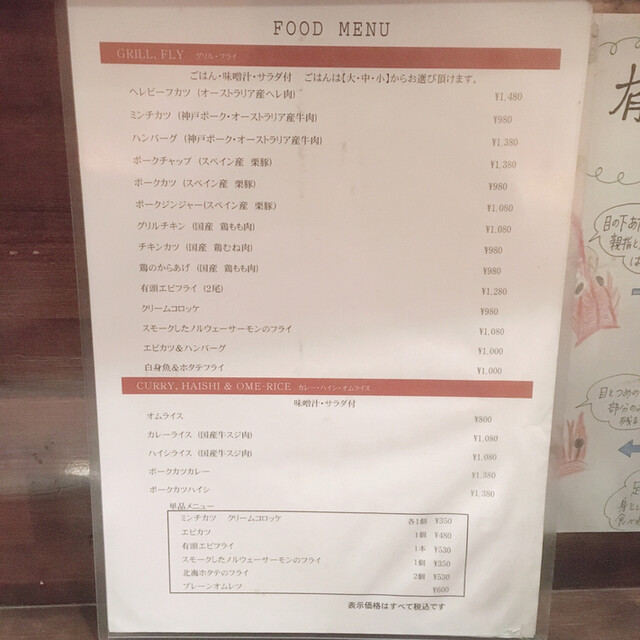 FOOD MENU
GRILL, FLY グリル・フライ
ごはん・味噌汁・サラダ付 ごはんは【大・中・小】からお選び頂けます。
ヘレビーフカツ (オーストラリア産ヘレ肉) ¥1,480
ミンチカツ (神戸ポーク・オーストラリア産牛肉) ¥980
ハンバーグ (神戸ポーク・オーストラリア産牛肉) ¥1,380
ポークチャップ (スペイン産 栗豚) ¥1,380
ポークカツ (スペイン産 栗豚) ¥980
ポークジンジャー(スペイン産 栗豚) ¥1,080
グリルチキン (国産 鶏もも肉) ¥1,080
チキンカツ (国産 鶏むね肉) ¥980
鶏のからあげ (国産 鶏もも肉) ¥980
有頭エビフライ (2尾) ¥1,280
クリームコロッケ ¥980
スモークしたノルウェーサーモンのフライ ¥1,080
エビカツ&ハンバーグ ¥1,000
白身魚&ホタテフライ ¥1,000
CURRY, HAISHI & OME-RICE カレー・ハイシ・オムライス
味噌汁・サラダ付
オムライス ¥800
カレーライス (国産牛スジ肉) ¥1,080
ハイシライス (国産牛スジ肉) ¥1,080
ポークカツカレー ¥1,380
ポークカツハイシ ¥1,380
単品メニュー
ミンチカツ クリームコロッケ 各1個 ¥350
エビカツ 1個 ¥480
有頭エビフライ 1本 ¥530
スモークしたノルウェーサーモンのフライ 1個 ¥350
北海ホタテのフライ 2個 ¥530
プレーンオムレツ ¥600
表示価格はすべて税込です
有
目の下あた
親指と
は
目とつめの
部分の
残